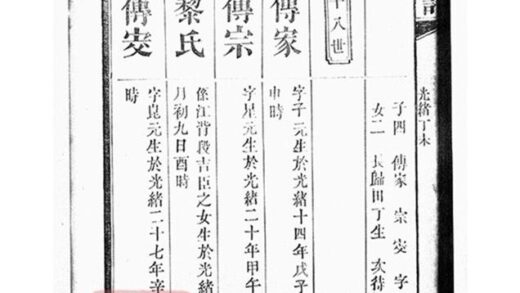 光緒丁未
子四 傳家 宗 安 字
女二 長歸田丁生 次待
十八世
傳家
字子元生於光緒十四年戊子
申時
傳宗
字星元生於光緒二十年甲午
黎氏
係江背段吉臣之女生於光緒
月初九日酉時
傳安
字崑元生於光緒二十七年辛
時